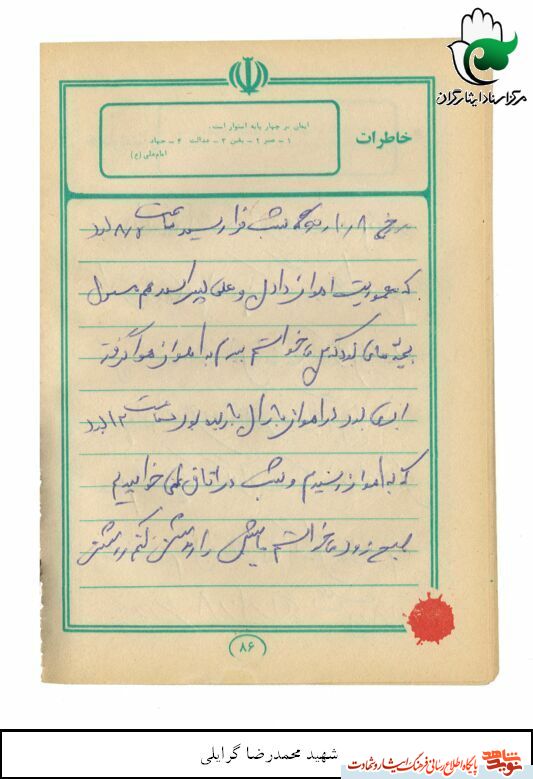 مرکز اسناد ایثارگران
خاطرات
ایمان بر چهار پایه استوار است.
۱ - صبر ۲ - یقین ۳ - عدالت ۴ - جهاد
امام علی (ع)
شب فرا رسید ساعت ۸ بود
که مأموریت اهواز دادن و علی هم مسئول
بچه های خواستم برم به اهواز هوا گرفته
ابری بود در اهواز باران باریده بود ساعت ۱۲ بود
که به اهواز رسیدم و شب در اتاق خوابیدم
صبح زود خواستم ماشین را روشن کنم روشن
۸۶
شهید محمدرضا گرایلی
نوید شاهد
پایگاه اطلاع رسانی فرهنگ ایثار و شهادت